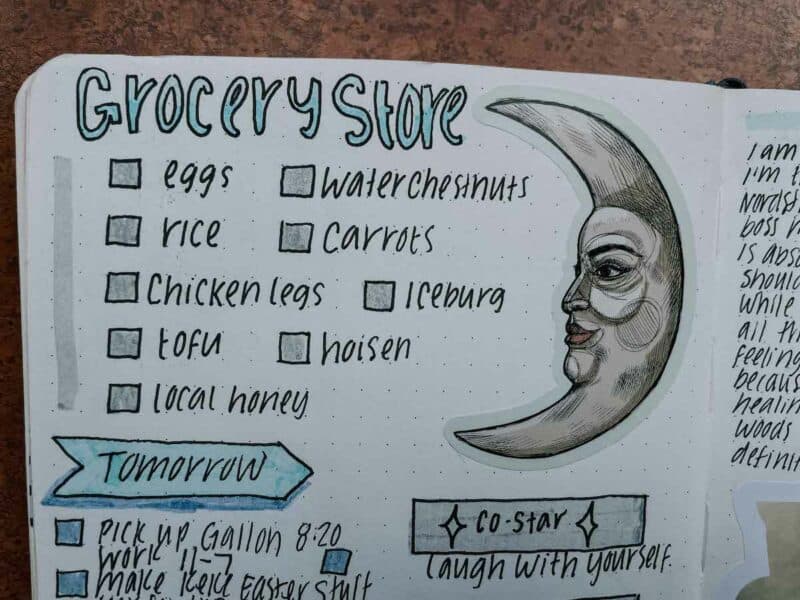 Grocery Store
eggs
water chestnuts
rice
carrots
Chicken legs
Iceburg
tofu
hoisen
local honey
Tomorrow
co-star
pick up Gallon 8:20
work 11-7
laugh with yourself.
make keke Easter stuff
I am
I'm t
Nordst
boss
is abso
should
while
all th
feeling
becaus
healin
woods
definit